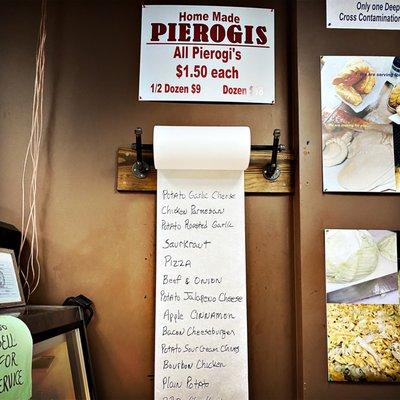 Home Made
PIEROGIS
All Pierogi's
$1.50 each
1/2 Dozen $9 Dozen
Only one Deep
Cross Contamination
we are serving
we are making
Potato Garlic Cheese
Chicken Parmesan
Potato Roasted Garlic
Saurkraut
Pizza
Beef & Onion
Potato Jalapeno Cheese
Apple Cinnamon
Bacon Cheeseburger
Potato Sour Cream Chives
Bourbon Chicken
Plain Potato
BELL
FOR
SERVICE